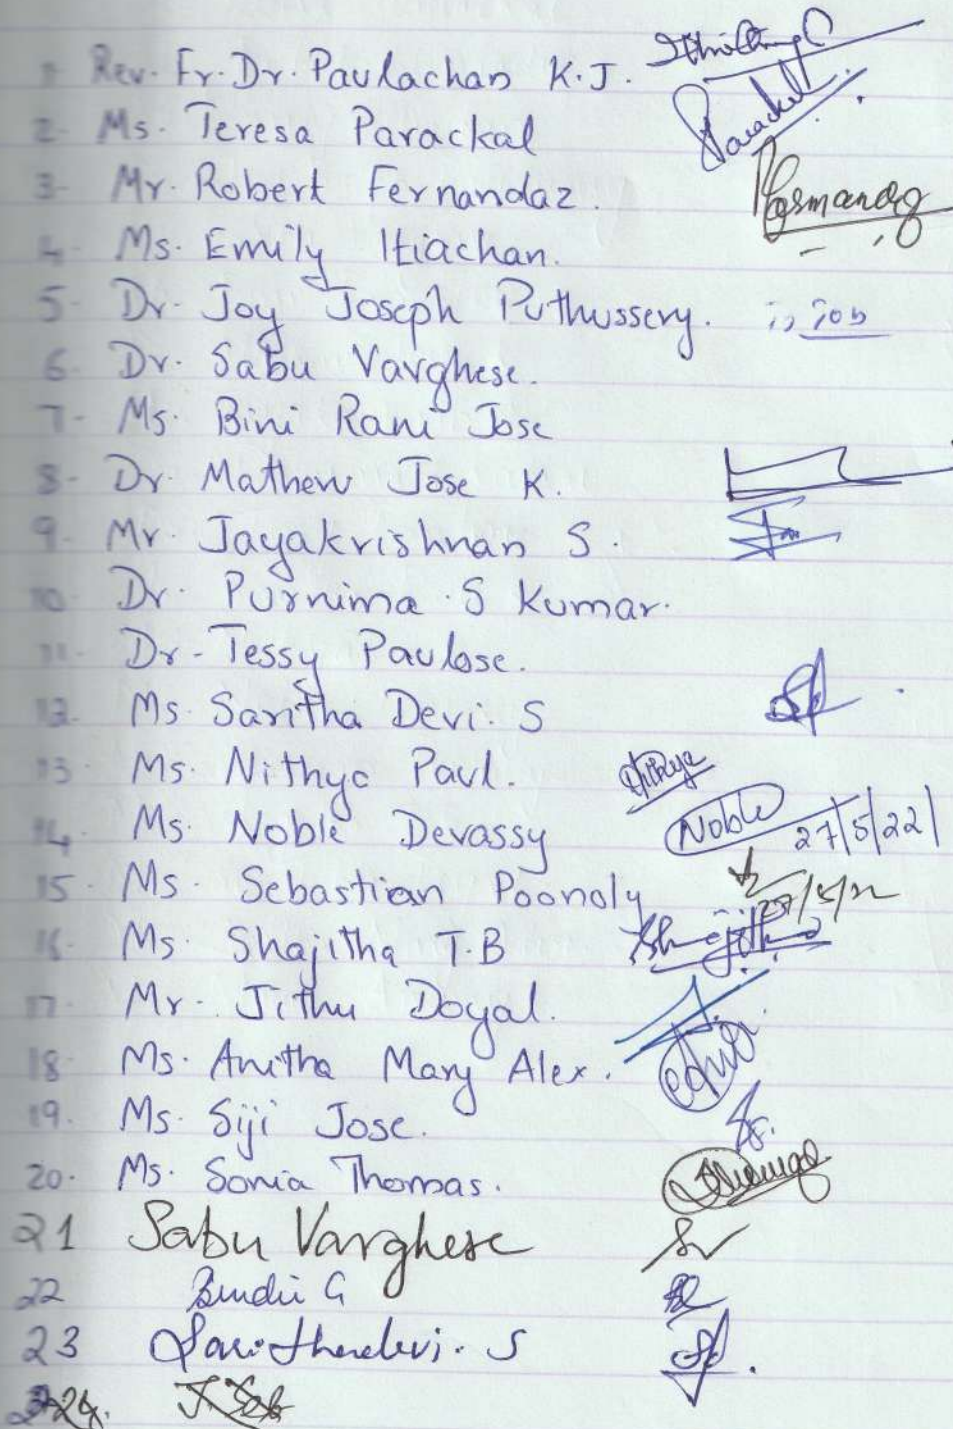 1 Rev. Fr. Dr. Paulachan K.J.
2- Ms. Teresa Parackal Parackal
3- Mr. Robert Fernandaz.
4- Ms. Emily Itiachan.
5- Dr. Joy Joseph Puthussery.
6- Dr. Sabu Varghese.
7- Ms. Bini Rani Jose
8- Dr. Mathew Jose K.
9- Mr. Jayakrishnan S.
10- Dr. Purnima . S Kumar.
11- Dr - Tessy Paulose.
12- Ms. Saritha Devi. S
13- Ms. Nithya Paul. Nithya
14- Ms. Noble Devassy Noble 27/5/22
15- Ms. Sebastian Poonoly 27/5/22
16- Ms. Shajitha T.B Shajitha
17- Mr. Jithu Doyal.
18- Ms. Anitha Mary Alex.
19. Ms. Siji Jose.
20. Ms. Sonia Thomas.
21 Sabu Varghese
22 Bindu G
23 Sarithadevi. S
24.